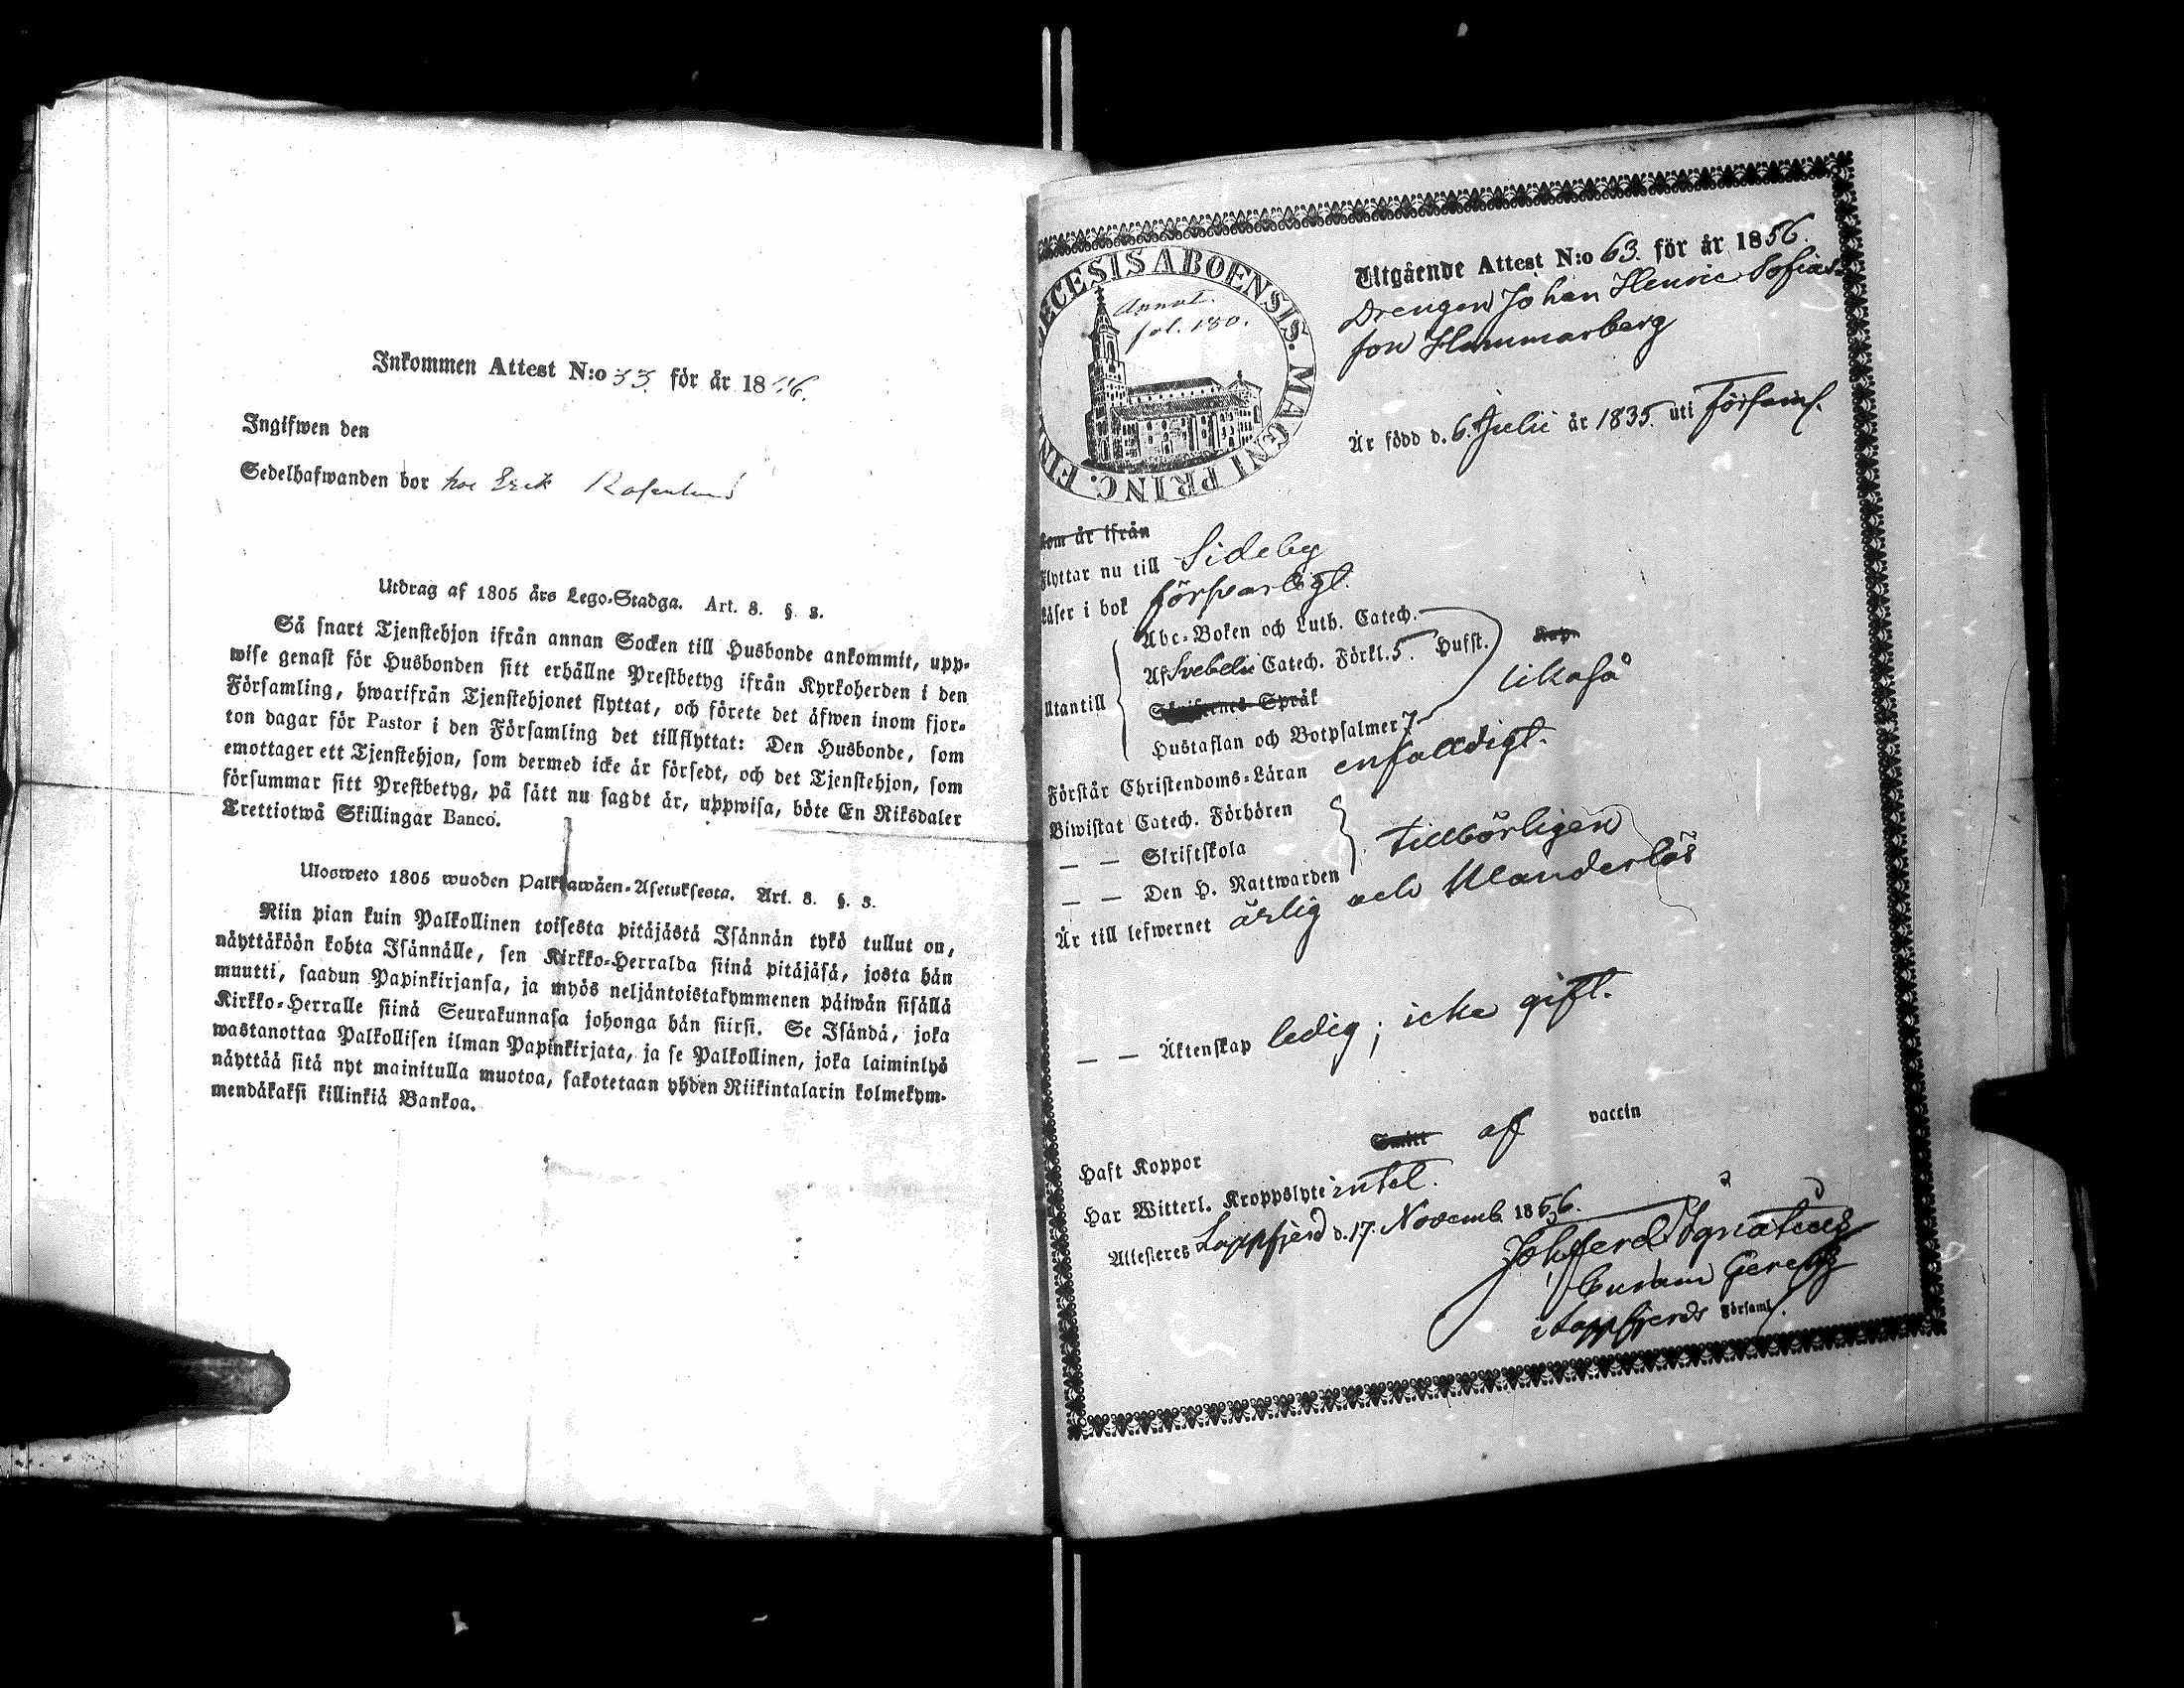 Inkommen Attest N:o 33 för år 1856.
Ingifwen den
Sedelhafwanden bor hos Erik Rosenlund
Utdrag af 1805 års Lego-Stadga. Art. 8. §. 3.
Så snart Tjenstehjon ifrån annan Socken till Husbonde ankommit, upp-
wise genast för Husbonden sitt erhållne Prestbetyg ifrån Kyrkoherden i den
Församling, hwarifrån Tjenstehjonet flyttat, och förete det äfwen inom fjor-
ton dagar för Pastor i den Församling det tillflyttat: Den Husbonde, som
emottager ett Tjenstehjon, som dermed icke är försedt, och det Tjenstehjon, som
försummar sitt Prestbetyg, på sätt nu sagdt är, uppwisa, böte En Riksdaler
Trettiotwå Skillingar Banco.
Ulosweto 1805 wuoden Palkkawäen-Asetuksesta. Art. 8. §. 3.
Niin pian kuin Palkollinen toisesta pitäjästä Isännän tykö tullut on,
näyttäköön kohta Isännälle, sen Kirkko-Herralda siinä pitäjäsä, josta hän
muutti, saadun Papinkirjansa, ja myös neljäntoistakymmenen päiwän sisällä
Kirkko-Herralle siinä Seurakunnasa johonga hän siirsi. Se Isändä, joka
wastanottaa Palkollisen ilman Papinkirjata, ja se Palkollinen, joka laiminlyö
näyttää sitä nyt mainitulla muotoa, sakotetaan yhden Riikintalarin kolmekym-
mendäkaksi killinkiä Bankoa.
ECESIS ABOENSIS. MAGNI PRINC. FIN
Annot.
fol. 180.
Utgående Attest N:o 63. för år 1856.
Drengen Johan Henric Sofias
son Hammarberg
Är född d. 6. Julii år 1835. uti Församl.
kom är ifrån
Flyttar nu till Sideby
Läser i bok försvarligt.
Utantill
Abc-Boken och Luth. Catech.
Af Svebelii Catech. Förkl. 5. Hufst.
likaså
Skriftenes Språk
Hustaflan och Botpsalmer 7
Förstår Christendoms-Läran enfalldigt.
Biwistat Catech. Förhören
— — Skriftskola
tillbörligen
— — Den H. Nattwarden
Är till lefwernet ärlig och oklanderlös
— — Äktenskap ledig; icke gift.
Haft Koppor Smitt af vaccin
Har Witterl. Kroppslyte intet.
Attesteres Lappfjerd d. 17. Novemb. 1856.
Joh. Ferd. Ignatius
Curam Gerens
i Lappfjerds Församl.